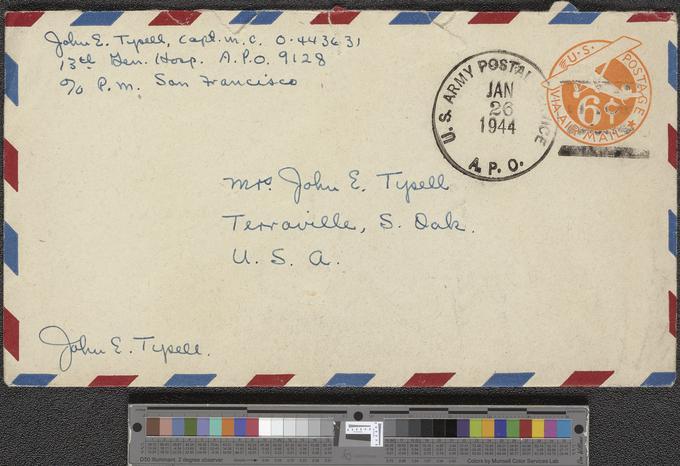 John E. Tysell, Capt. M.C. O-443631
13th Gen. Hosp. A.P.O. 9128
c/o P.M. San Francisco
U.S. ARMY POSTAL SERVICE
JAN
26
1944
A.P.O.
U.S. POSTAGE
6¢
VIA AIR MAIL
Mrs. John E. Tysell
Terraville, S. Dak.
U. S. A.
John E. Tysell.
D50 Illuminant, 2 degree observer
Colors by Munsell Color Services Lab